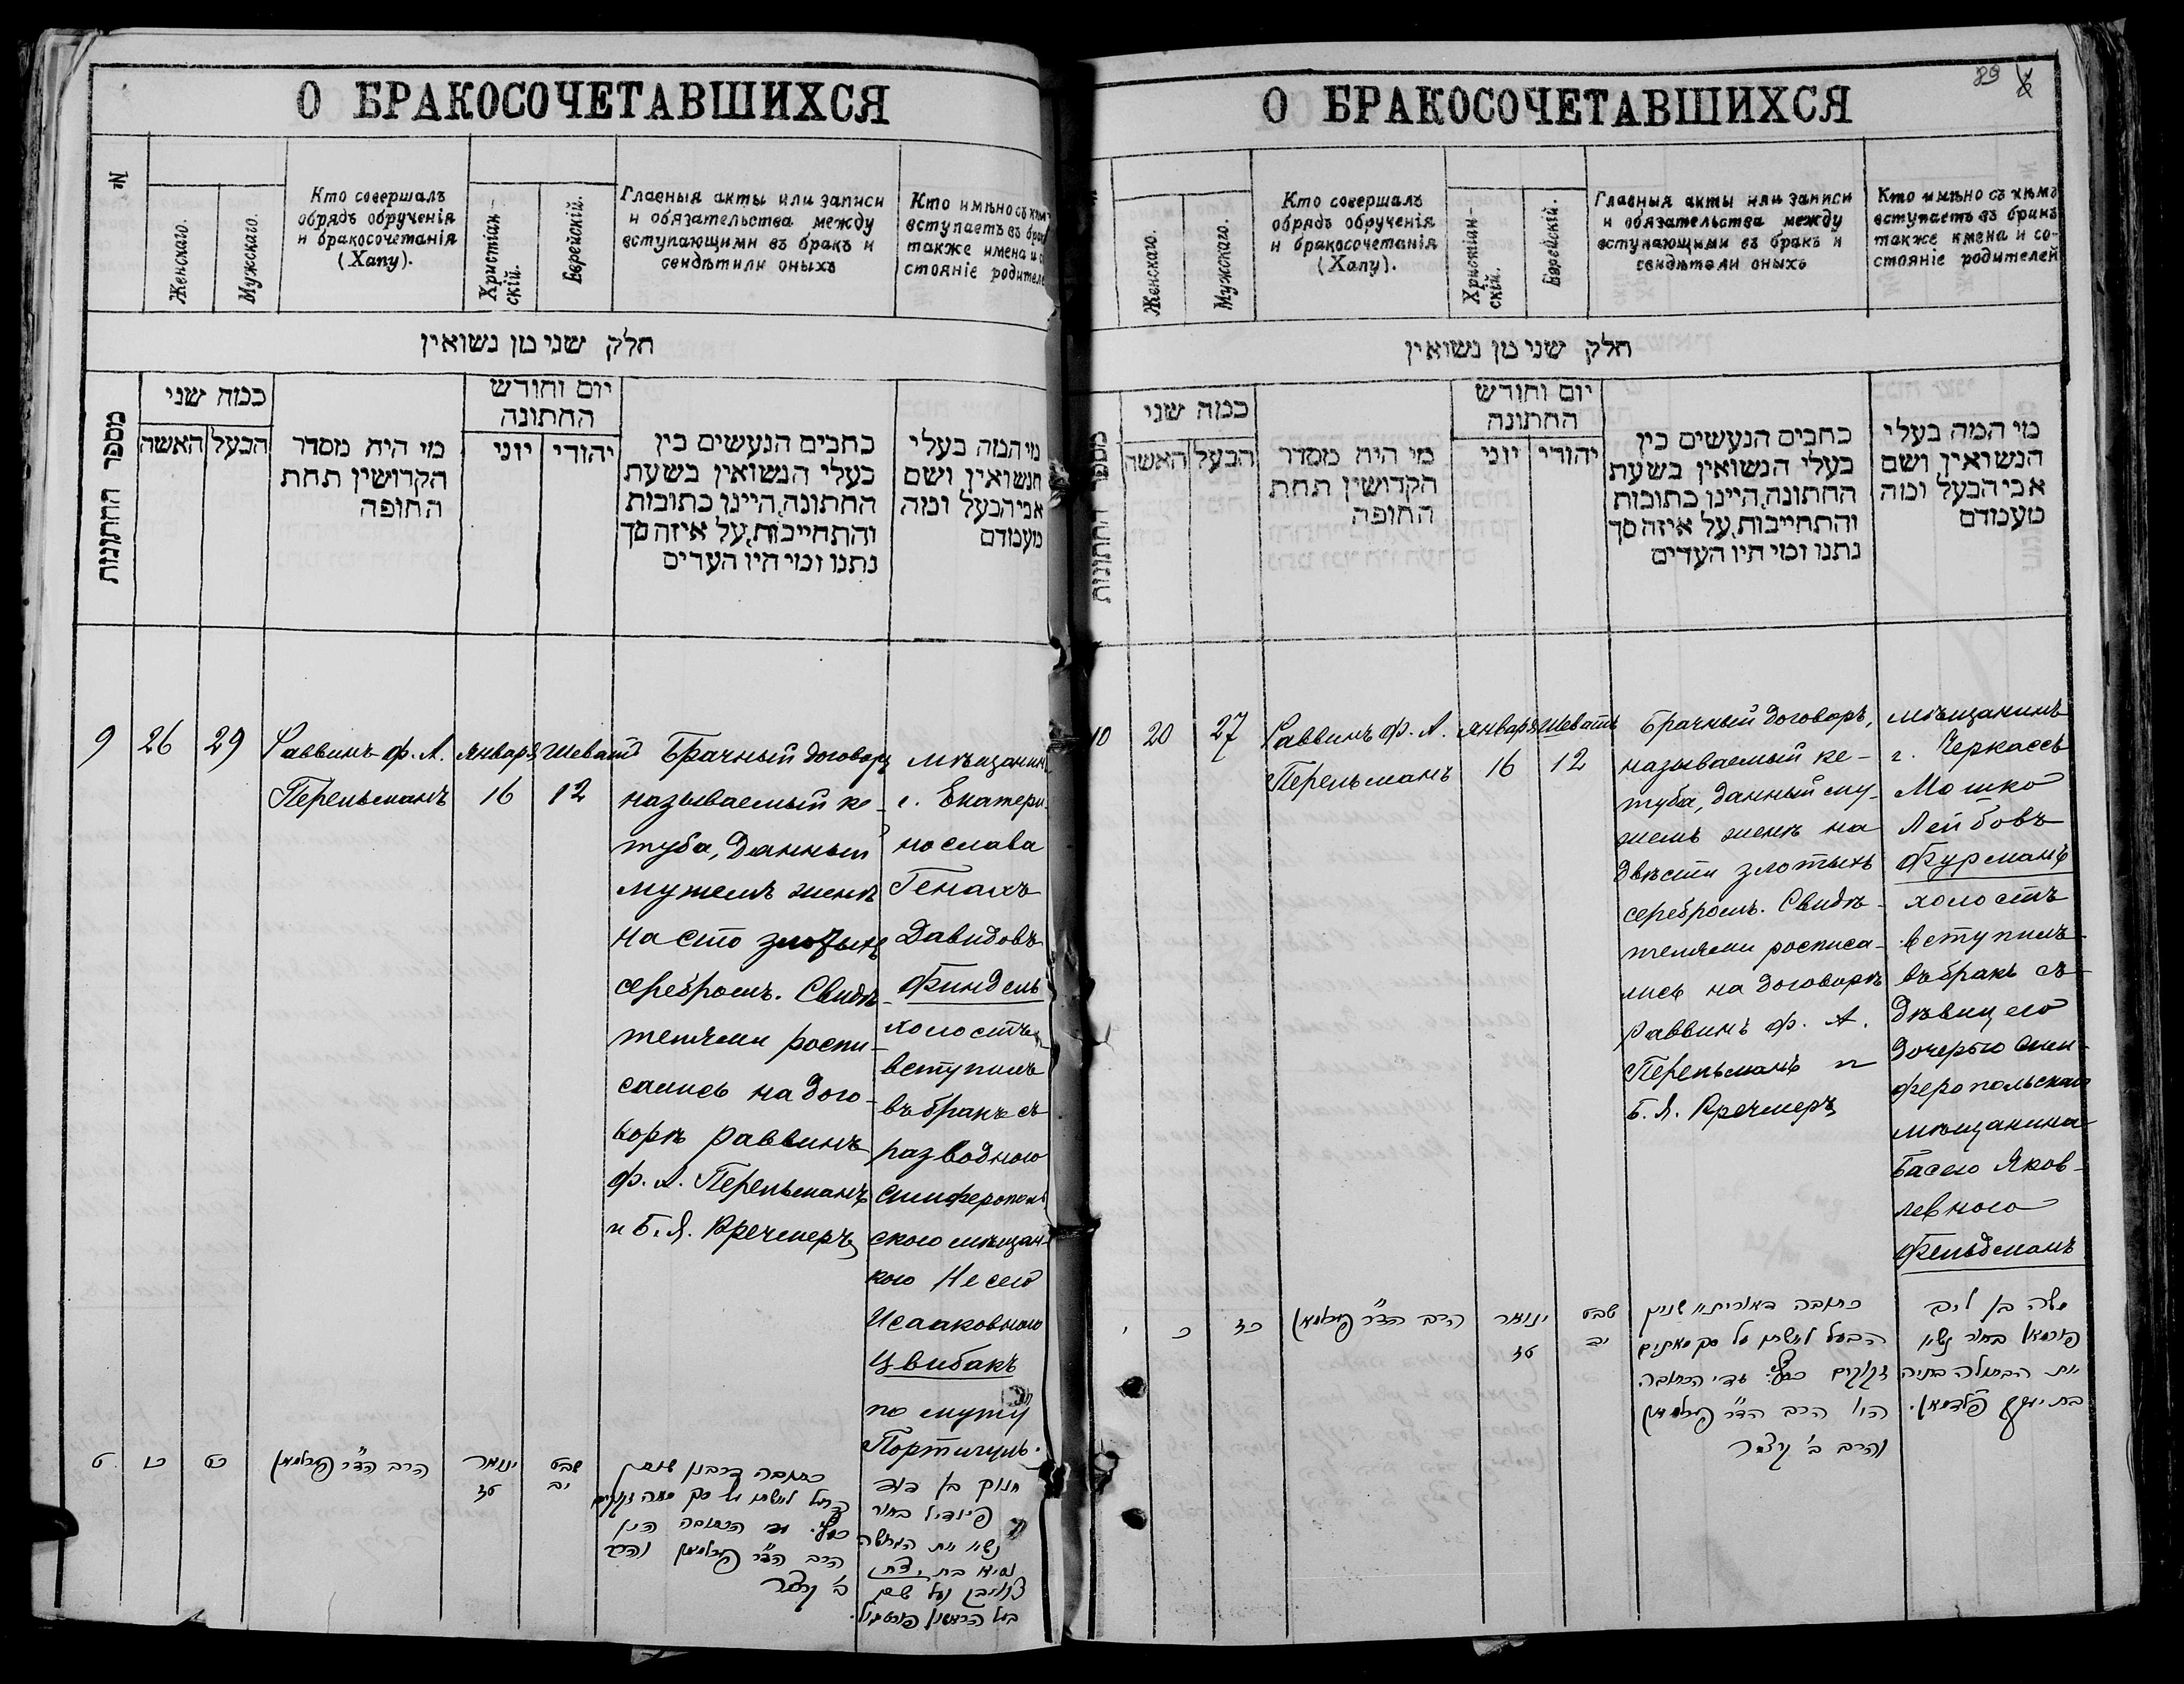 О БРАКОСОЧЕТАВШИХСЯ
№
Женскаго.
Мужскаго.
Кто совершалъ
обрядъ обрученія
и бракосочетанія
(Хапу).
Христіан-
скій.
Еврейскій.
Главныя акты или записи
и обязательства между
вступающими въ бракъ и
свидѣтили оныхъ
Кто имѣно съ кѣмъ
вступаетъ въ бракъ
также имена и со
стояніе родителей
חלק שני מן נשואין
מספר החתונות
כמה שני
האשה
הבעל
מי היה מסדר
הקדושין תחת
החופה
יום וחודש
החתונה
יוני
יהודי
כתבים הנעשים בין
בעלי הנשואין בשעת
החתונה, היינו כתובות
והתחייבות, על איזה סך
נתנו ומי היו העדים
מי המה בעלי
הנשואין ושם
אבי הבעל ומה
מעמדם
9
26
29
Раввинъ Ф. А.
Перельманъ
Января
16
Шеватъ
12
Брачный договоръ
называемый ке-
туба, данный
мужемъ женѣ
на сто злотыхъ
серебромъ. Свидѣ-
телями роспи-
сались на дого-
ворѣ раввинъ
Ф. А. Перельманъ
и Б. Я. Кречмеръ
мѣщанинъ
г. Екатери-
нослава
Генахъ
Давидовъ
Финдель
холостъ
вступилъ
въ бракъ съ
разводною
симферополь
скою мѣщан-
кою Несею
Исааковною
Цвибакъ
по мужу
Портигуль.
ט
כו
כט
הרב הד״ר פערלמאן
ינואר
טז
שבט
יב
כתובה דרבנן שנתן
הבעל לאשתו על סך מאה זקוקים
כסף. עדי הכתובה היו
הרב הד״ר פערלמאן והרב
ב׳
חנוך בן דוד
פינדיל בחור
נשא את הגרושה
О БРАКОСОЧЕТАВШИХСЯ
89
Женскаго.
Мужскаго.
Кто совершалъ
обрядъ обрученія
и бракосочетанія
(Хапу).
Христіан-
скій.
Еврейскій.
Главныя акты или записи
и обязательства между
вступающими въ бракъ и
свидѣтели оныхъ
Кто имѣно съ кѣмъ
вступаетъ въ бракъ
также имена и со-
стояніе родителей
חלק שני מן נשואין
מספר החתונות
כמה שני
האשה
הבעל
מי היה מסדר
הקדושין תחת
החופה
יום וחודש
החתונה
יוני
יהודי
כתבים הנעשים בין
בעלי הנשואין בשעת
החתונה, היינו כתובות
והתחייבות, על איזה סך
נתנו ומי היו העדים
מי המה בעלי
הנשואין ושם
אבי הבעל ומה
מעמדם
10
20
27
Раввинъ Ф. А.
Перельманъ
Января
16
Шеватъ
12
Брачный договоръ,
называемый ке-
туба, данный му-
жемъ женѣ на
двѣсти злотыхъ
серебромъ. Свидѣ-
телями росписа-
лись на договорѣ
Раввинъ Ф. А.
Перельманъ и
Б. Я. Кречмеръ
мѣщанинъ
г. Черкассъ
Мошко
Лейбовъ
Фурманъ
холостъ
вступилъ
въ бракъ съ
дѣвицею
дочерью сим-
феропольскаго
мѣщанина
Басею Яков-
левною
Фельдманъ
י
כ
כז
הרב הד״ר פערלמאן
ינואר
טז
שבט
יב
כתובה דאורייתא שנתן
הבעל לאשתו על סך מאתים
זקוקים כסף. עדי הכתובה
היו הרב הד״ר פערלמאן
והרב ב׳
משה בן ליב
פורמאן בחור נשא
את הבתולה בתיה
בת יעקב פלדמאן.